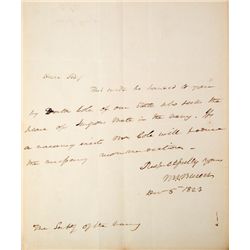 Dear Sir,
This will be handed to you
by Doctr Cole of our State who seeks the
place of Surgeons Mate in the navy. If
a vacancy exists Mr Cole will produce
the necessary recommendations.
Respectfully yours
Decr 5th 1823
The Secty of the Navy